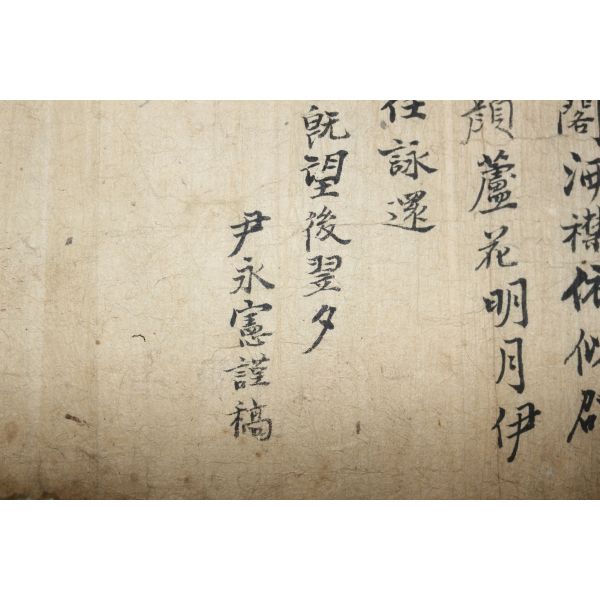 閣洒襟依似
顔蘆花明月伊
任詠還
旣望後翌夕
尹永憲謹稿